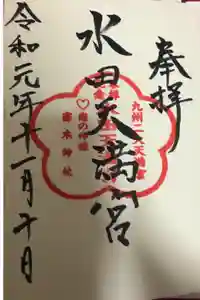 奉拝
水田天満宮
令和元年十一月十日
九州二大天満宮
恋木神社